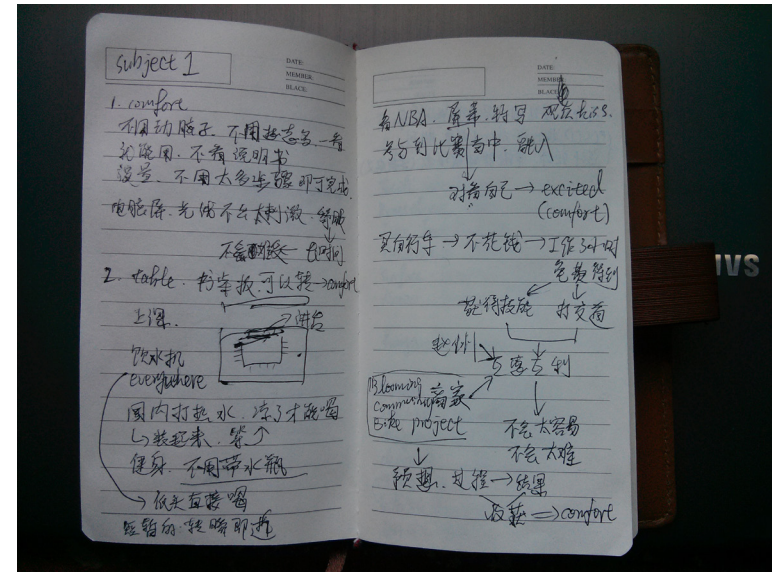 subject 1
DATE:
MEMBER:
PLACE:
1. comfort
不用动脑子、不用想怎么一看
就能用、不看说明书
设置、不用太多步骤即可完成.
电脑屏、光线不么太刺激、舒服
不会 ← 长时间
2. table. 书桌板可以转→comfort
上课. 讲台
饮水机
everywhere
国内打热水、凉了才能喝
↳装起来、等↗
健身、不用带水瓶
→低头直接喝
短暂的、转瞬即逝
DATE:
MEMBER:
PLACE:
看NBA. 屏幕. 特写 观众 kiss.
参与到比赛当中、融入
对着自己→excited
(comfort)
买自行车→不花钱→工作3小时
免费得到
获得技能 打交道
互惠互利
Blooming 商家
community
Bike project
不会太容易
不会太难
预想、过程→结果
收获⇒comfort